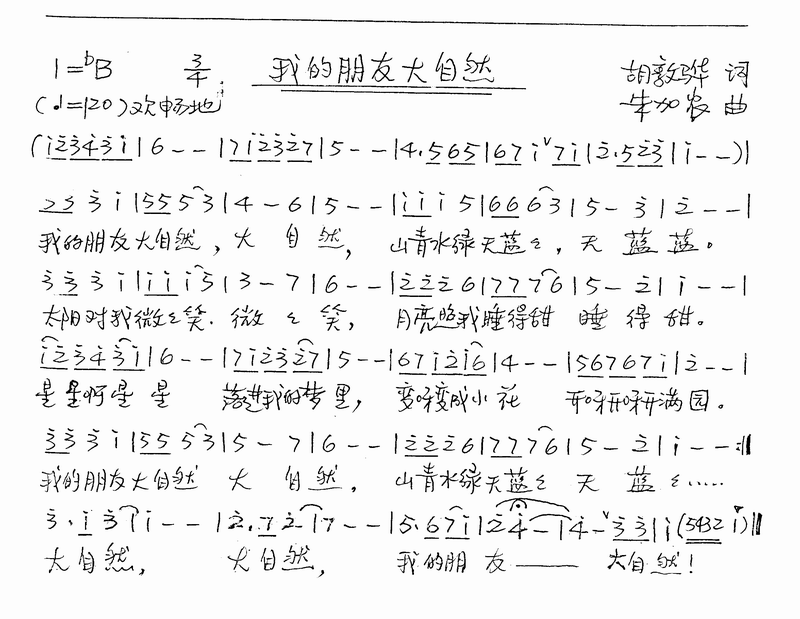 1=ᵇB 3/4 我的朋友大自然 胡敦骅 词
(♩=120)欢畅地 朱加农 曲
(i̇2̇3̇4̇3̇i̇|6--|7i̇2̇3̇2̇7|5--|4.565|67i̇ˇ7i̇|2̇.52̇3̇|i̇--)|
3̇3̇ 3̇ i̇|55 5 3|4-6|5--|i̇ i̇ i̇ 5|66 6 3|5-3̇|2̇--|
我的朋友大自然,大 自 然, 山青水绿天蓝々,天 蓝 蓝。
3̇ 3̇ 3̇ i̇|i̇ i̇ i̇ 5|3-7|6--|2̇2̇2̇6|7776|5-2̇|i̇--|
太阳对我微々笑.微 々 笑, 月亮照我睡得甜 睡 得 甜。
i̇2̇3̇4̇3̇i̇|6--|7i̇2̇3̇2̇7|5--|67i̇2̇i̇6|4--|56767i̇|2̇--|
星星啊星 星 落进我的梦里, 变呀变成小花 开呀开呀开满园。
3̇3̇ 3̇ i̇|55 5 3|5-7|6--|2̇2̇2̇6|7776|5-2̇|i̇--:‖
我的朋友大自然 大 自 然. 山青水绿天蓝々 天 蓝 々……
3̇.i̇ 3̇|i̇--|2̇.7 2̇|7--|5.67i̇|2̇4̇-|4̇-ˇ3̇3̇|i̇(5432 i̇)‖
大自然, 大自然, 我的朋 友—— 大自然!